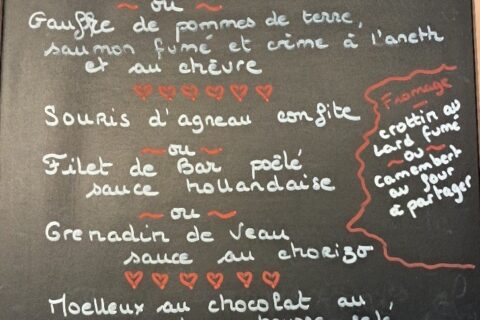 ~ ou ~
Gauffre de pommes de terre,
saumon fumé et crème à l'aneth
et au chèvre
Souris d'agneau confite
~ ou ~
Filet de Bar poêlé
sauce hollandaise
~ ou ~
Grenadin de veau
sauce au chorizo
Moelleux au chocolat au
Fromage
crottin au
lard fumé
~ ou ~
camembert
au four
à partager